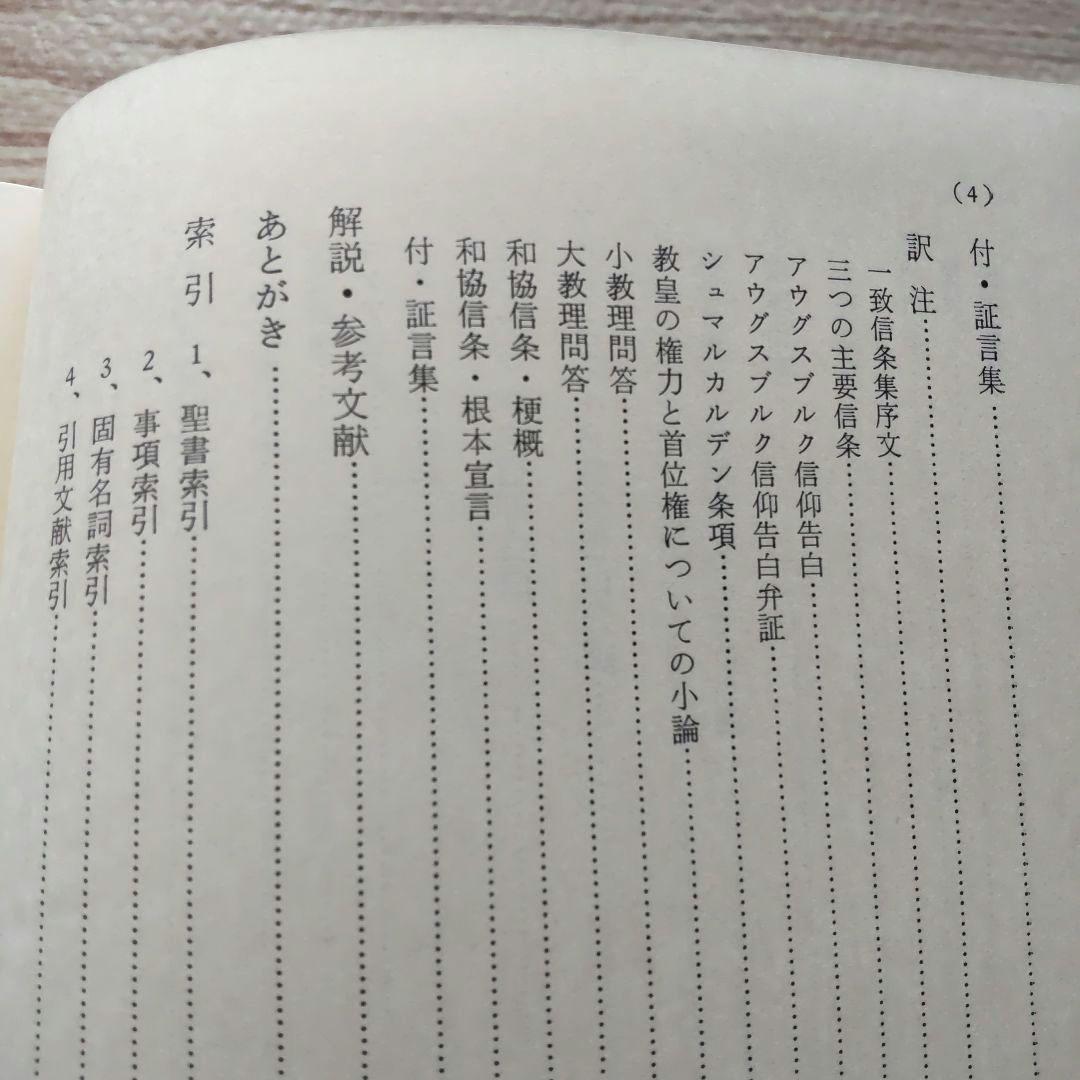 (4)
付・証言集
訳注
一致信条集序文
三つの主要信条
アウグスブルク信仰告白
アウグスブルク信仰告白弁証
シュマルカルデン条項
教皇の権力と首位権についての小論
小教理問答
大教理問答
和協信条・梗概
和協信条・根本宣言
付・証言集
解説・参考文献
あとがき
索引 1、聖書索引
2、事項索引
3、固有名詞索引
4、引用文献索引